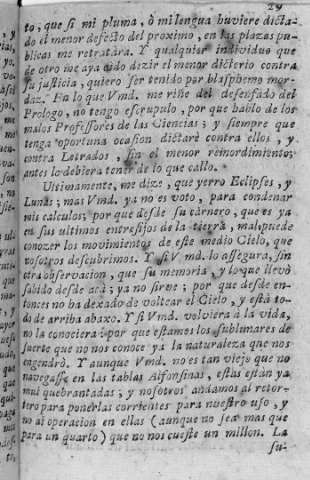 29
to, que si mi pluma, ò mi lengua huviere dicta-
do el menor defecto del proximo, en las plazas pu-
blicas me retratàra. Y qualquier individuo que
de otro me aya oìdo dezir el menor dicterio contra
su justicia, quiero ser tenido por blasphemo mor-
daz. En lo que Vmd. me riñe del desenfado del
Prologo, no tengo escrupulo, por que hablo de los
malos Professores de las Ciencias; y siempre que
tenga oportuna ocasion dictarè contra ellos, y
contra Letrados, sin el menor remordimiento;
antes lo debiera tener de lo que callo.
Ultimamente, me dize, que yerro Eclipses, y
Lunas; mas Vmd. ya no es voto, para condenar
mis calculos; por que desde su carnero, que es ya
en sus ultimos entresijos de la tierra, mal puede
conozer los movimientos de este medio Cielo, que
nosotros descubrimos. Y si Vmd. lo assegura, sin
otra observacion, que su memoria, y lo que llevò
sabido desde acà; ya no sirve; por que desde en-
tonces no ha dexado de voltear el Cielo, y està to-
do de arriba abaxo. Y si Vmd. volviera à la vida,
no la conociera: por que estamos los sublunares de
suerte que no nos conoce ya la naturaleza que nos
engendrò. Y aunque Vmd. no es tan viejo que no
navegasse en las tablas Alfonsinas, estas estàn ya
mui quebrantadas; y nosotros andamos al retor-
tero para ponerlas corrientes para nuestro uso, y
no ai operacion en ellas (aunque no sea mas que
para un quarto) que no nos cueste un millon. La
su-